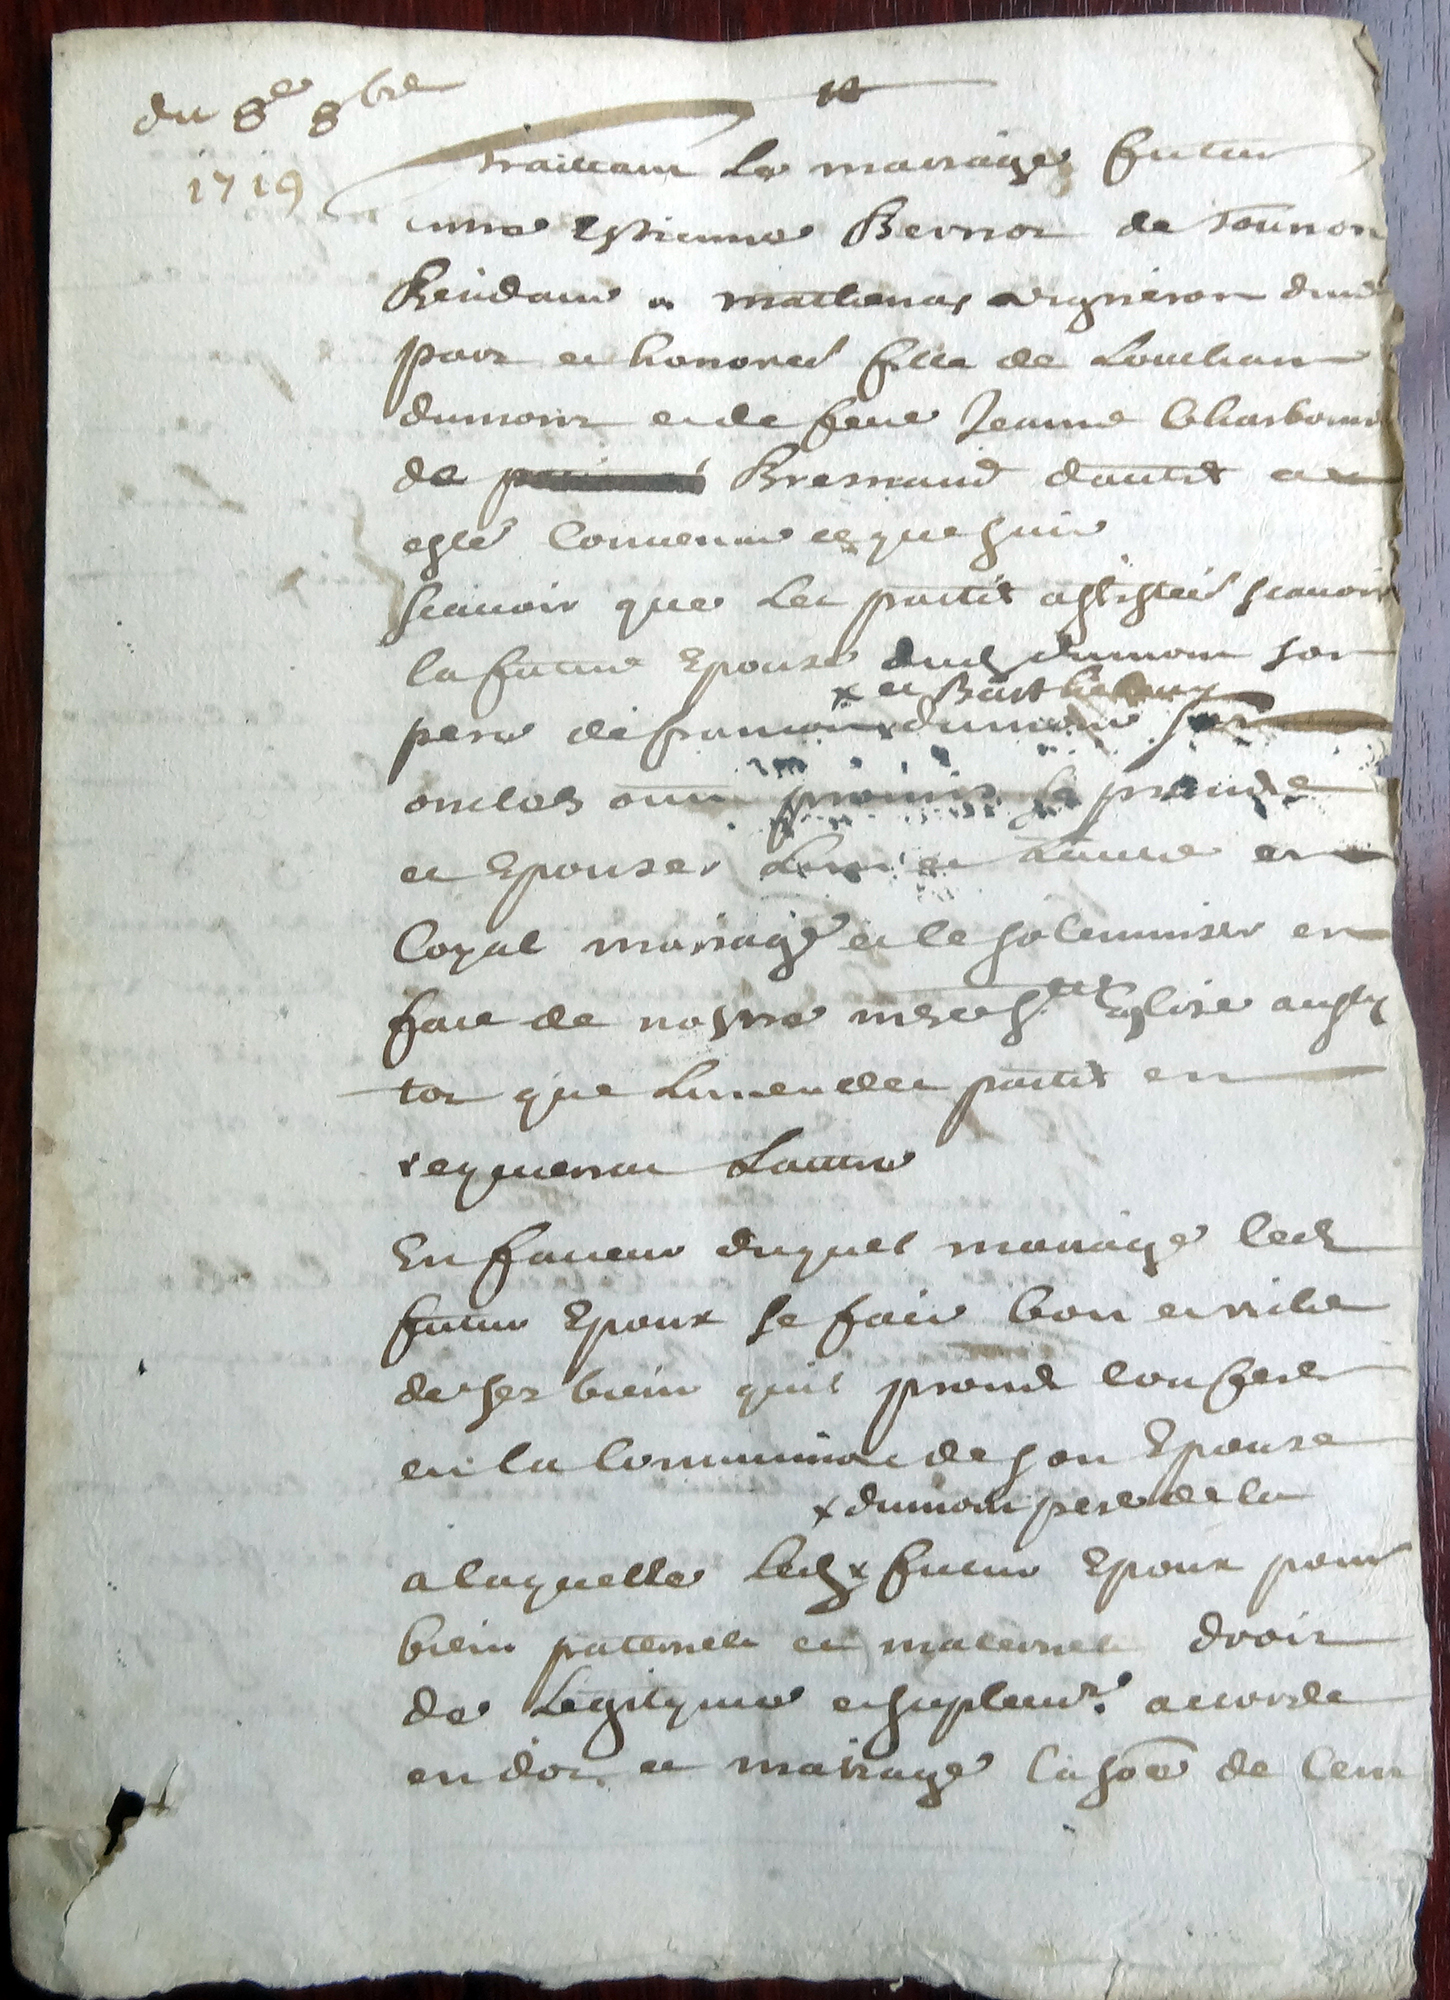 du 8e 8bre
1719
Traittant Le mariage futur
entre Estienne Bernot de
Residant a vigneron dud
part et honoreé fille de
dumont et de feue Jeanne Charbon
de dautre a
esté Convenu ce que suit
scauoir que Les partie assisteé scauoir
la future Epouse dud dumont son
x et Barthelemy
pere de francois dumont son
oncles ont promis se prendre
et Epouser Lun et Lautre en
Loyal mariage et le solemniser en
face de nostre mere ste Eglise aussy
tot que Lune des partie en
requerrat Lautre
En faueur duquel mariage led
futur Epoux se fait bon et riche
de ses bien quil promet confere
en la Communion de son Epouse
x dumont pere de la
a laquelle led x futur Epoux pour
bien paternele et maternel droit
de Legityme et suplemt. accorde
en dot et mariage la soe de Cent